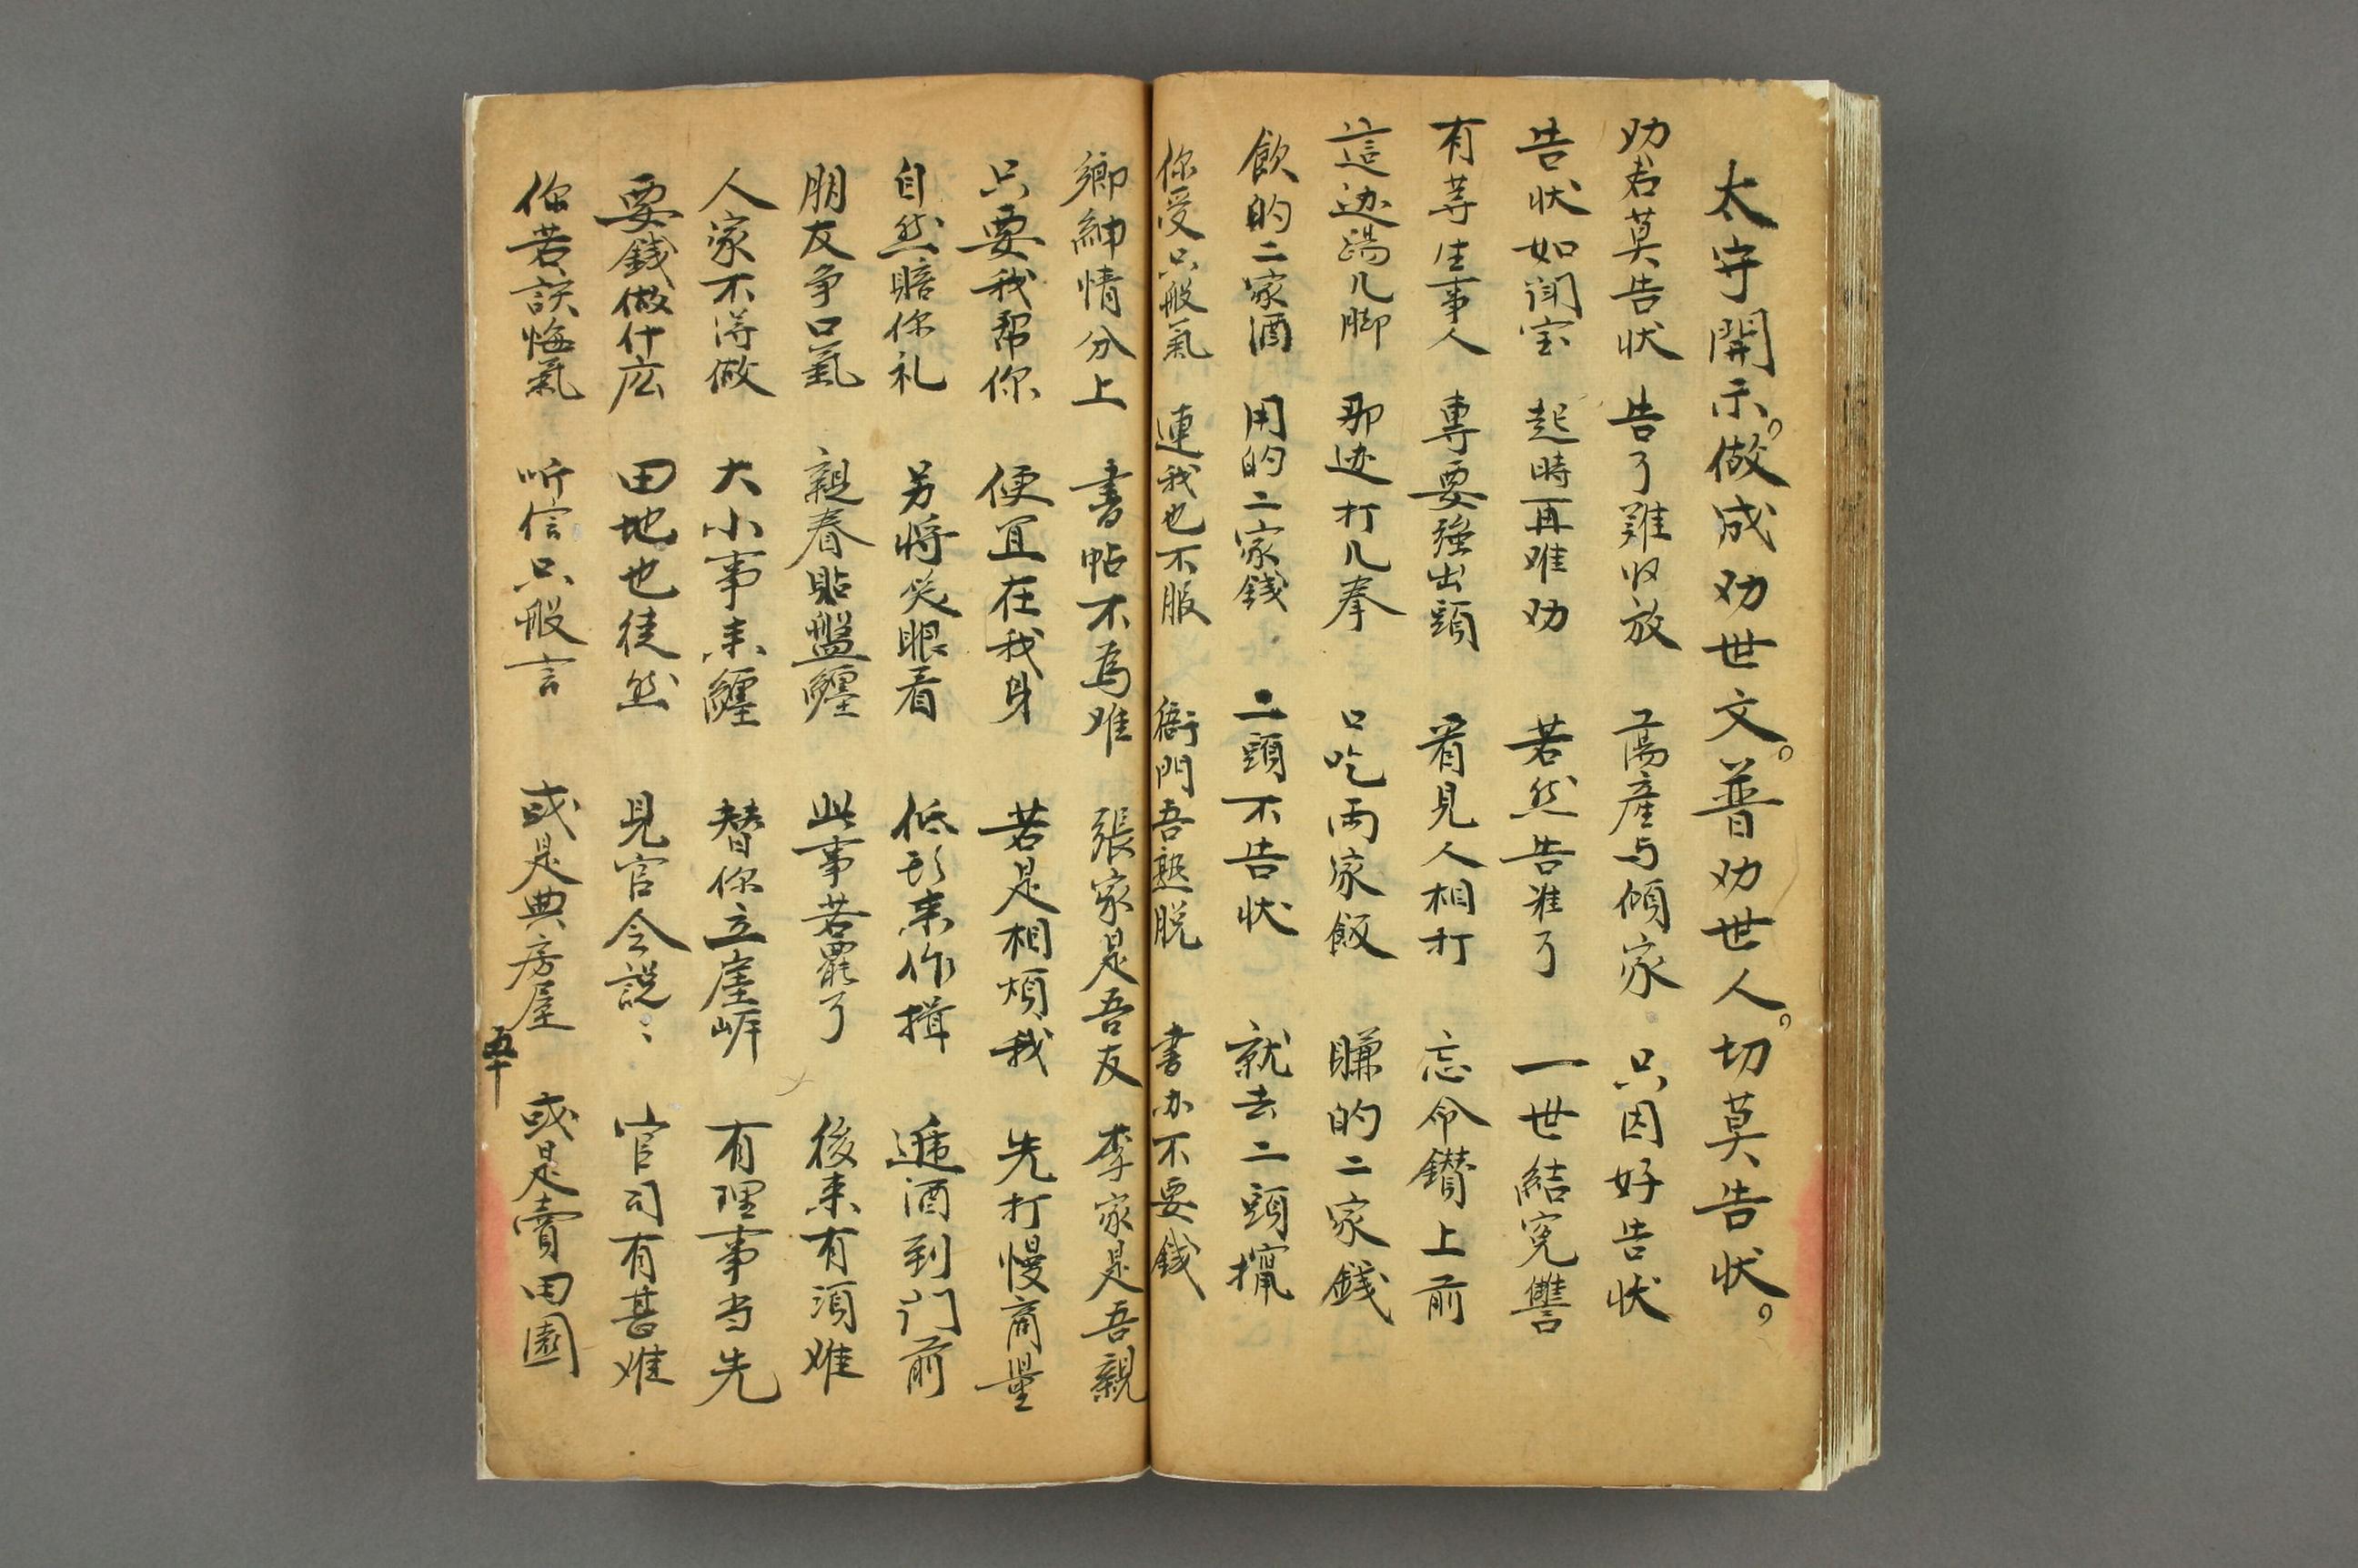 太守開示。做成劝世文。普劝世人。切莫告状。
劝君莫告状 告了難收放 蕩産与傾家 只因好告状
告状如闯宝 起時再难劝 若然告准了 一世結寃讐
有等生事人 專要強出頭 看見人相打 忘命鑽上前
這边踢几脚 那边打几拳 口吃両家飯 賺的二家錢
飲的二家酒 用的二家錢 二頭不告状 就去二頭攛
你受只般氣 連我也不服 衙門吾熟脱 書办不要錢
鄉紳情分上 書帖不為难 張家是吾友 李家是吾親
只要我帮你 便宜在我身 若是相煩我 先打慢商量
自然賠你礼 另将笑眼看 低形来作揖 遞酒到门前
朋友争口氣 親眷貼盤纏 此事若罷了 後来有須难
人家不得做 大小事来纏 替你立崖岸 有理事当先
要錢做什庅 田地也徒然 見官令説〻 官司有甚难
你若誤悔氣 听信只般言 或是典房屋 或是賣田園
五十